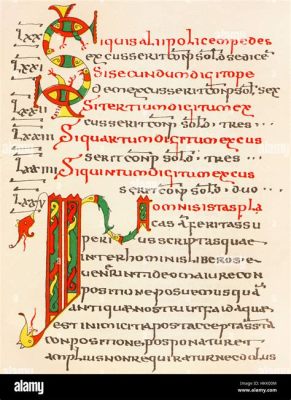 LXX Siquis alii police pedes
excusserit conp solo sedece
LXXI Si secundum digito pe
excusserit conp solo sex
LXXII Si tertium digitum ex
cusserit conp solo tres
LXXIII Si quartum digitum excus
serit conp solo tres
LXXIIII Si quintum digitum excus
serit conp solo duo
LXXV omnis istas pla
cas feritas su
perius scriptas quae
inter hominis liberos e
uenerint ideo maiore con
positione posuemus qua
antiquae nostri
est inimicitia post accepta
conpositione postponatur et
amplius non requiratur nec dolus
alamy
Image ID: HKK00M
www.alamy.com